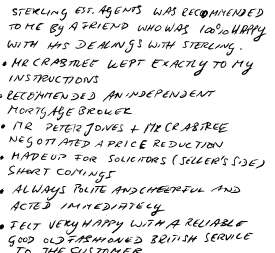 STERLING EST. AGENTS WAS RECOMMENDED
TO ME BY A FRIEND WHO WAS 100% HAPPY
WITH HIS DEALINGS WITH STERLING.
• MR CRABTREE KEPT EXACTLY TO MY
INSTRUCTIONS
• RECOMMENDED AN INDEPENDENT
MORTGAGE BROKER
• MR PETER JONES + MR CRABTREE
NEGOTIATED A PRICE REDUCTION
• MADE UP FOR SOLICITORS (SELLER'S SIDE)
SHORT COMINGS
• ALWAYS POLITE AND CHEERFUL AND
ACTED IMMEDIATELY
• FELT VERY HAPPY WITH A RELIABLE
GOOD OLD FASHIONED BRITISH SERVICE
TO THE CUSTOMER